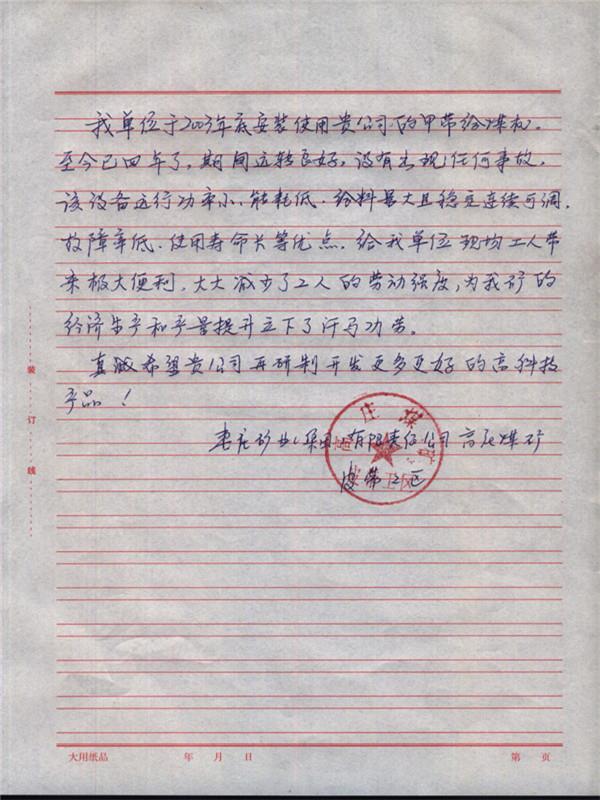 我单位于2003年底安装使用贵公司的甲带给煤机。
至今已四年了，期间运转良好，没有出现任何事故，
该设备运行功率小、能耗低、给料量大且稳定连续可调，
故障率低、使用寿命长等优点，给我单位现场工人带
来极大便利，大大减少了工人的劳动强度，为我矿的
经济生产和产量提升立下了汗马功劳。
真诚希望贵公司再研制开发更多更好的高科技
产品！
枣庄矿业集团有限责任公司高庄煤矿
皮带工区
高庄煤矿
装订线
大用纸品 年 月 日 第 页